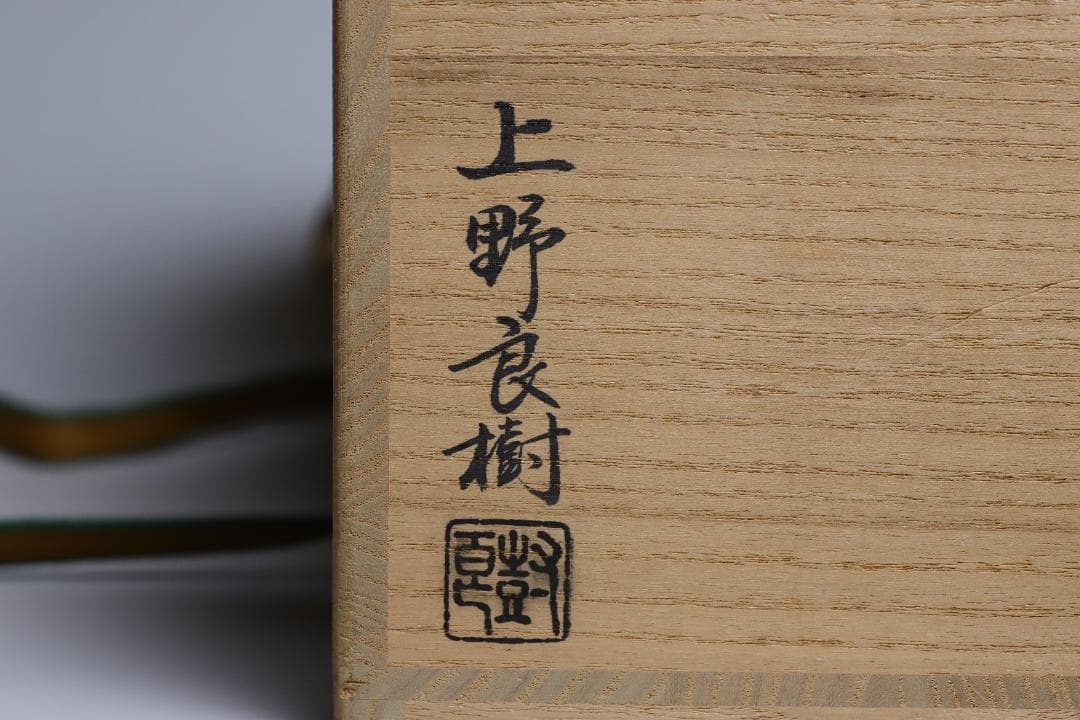 上野良樹